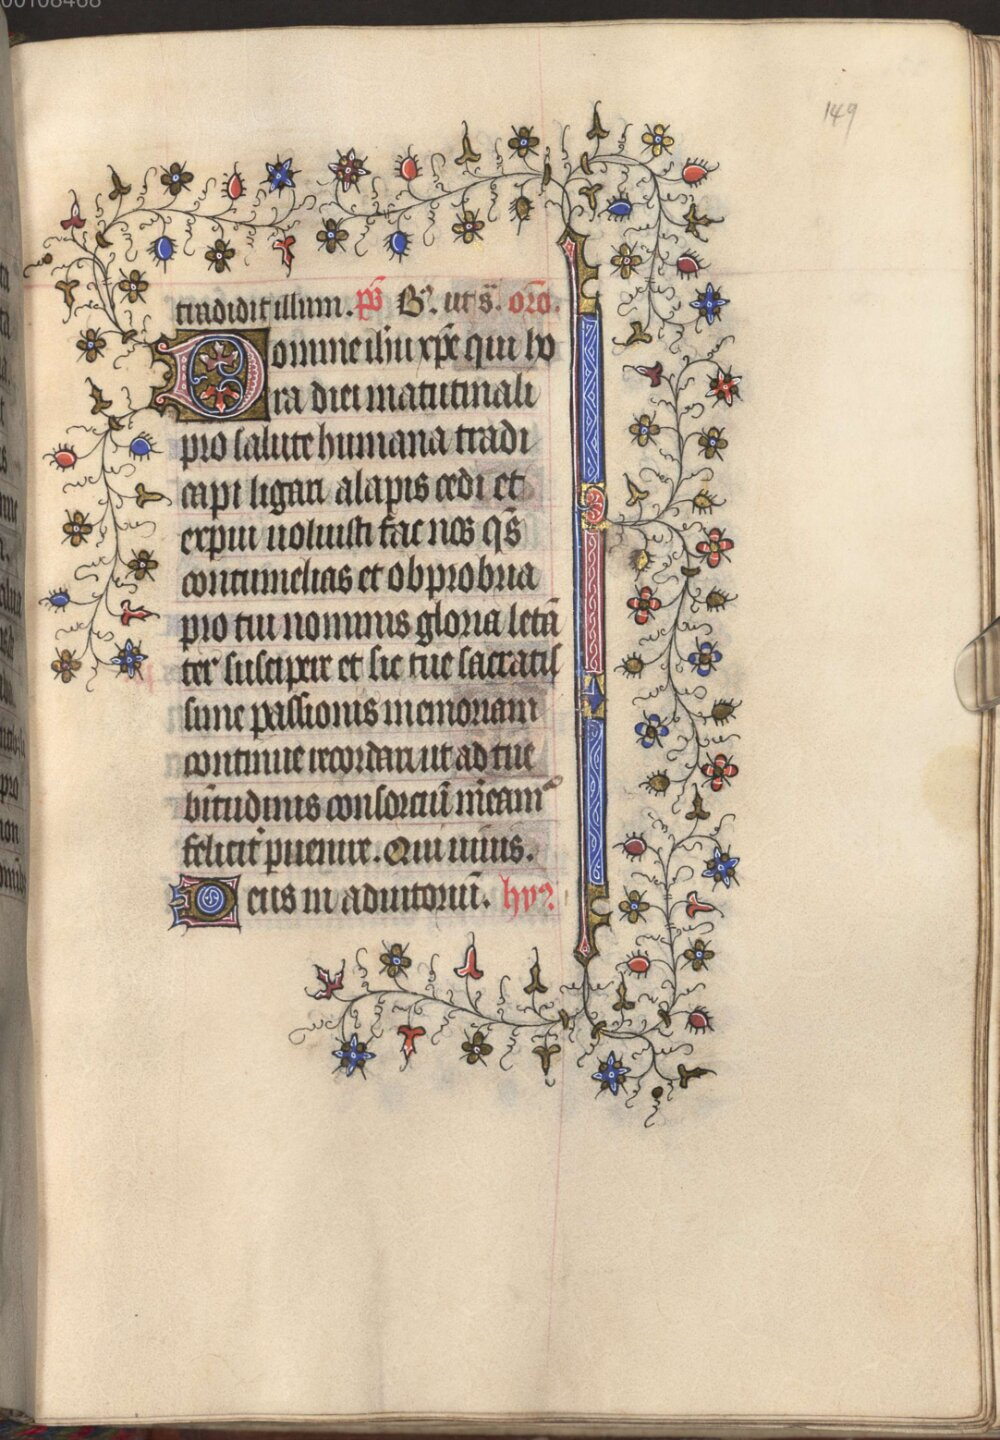 00108468
149
tradidit illum. ps̄ B9. ut s̄. orō.
Domine ihū xp̄e qui ho
ra diei matutinali
pro salute humana tradi
capi ligari alapis cedi et
expui uoluisti fac nos qs̄
contumelias et obprobria
pro tui nominis gloria letā
ter suscipere et sic tue sacratis
sime passionis memoriam
continue recordari ut ad tue
btitudinis consorciū
felicit puenire. Qui uiuis.
Deus in adiutoriū. hy9.